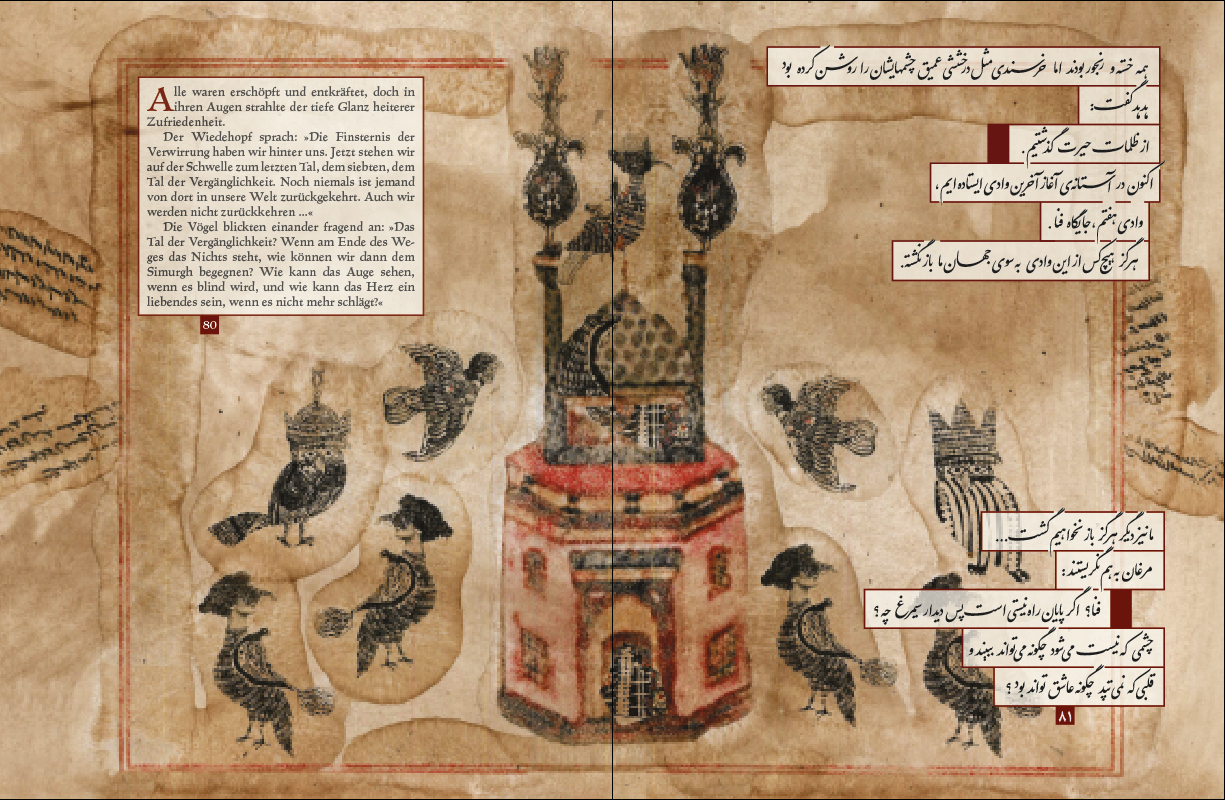 Alle waren erschöpft und entkräftet, doch in
ihren Augen strahlte der tiefe Glanz heiterer
Zufriedenheit.
Der Wiedehopf sprach: »Die Finsternis der
Verwirrung haben wir hinter uns. Jetzt stehen wir
auf der Schwelle zum letzten Tal, dem siebten, dem
Tal der Vergänglichkeit. Noch niemals ist jemand
von dort in unsere Welt zurückgekehrt. Auch wir
werden nicht zurückkehren ...«
Die Vögel blickten einander fragend an: »Das
Tal der Vergänglichkeit? Wenn am Ende des We-
ges das Nichts steht, wie können wir dann dem
Simurgh begegnen? Wie kann das Auge sehen,
wenn es blind wird, und wie kann das Herz ein
liebendes sein, wenn es nicht mehr schlägt?«
80
همه خسته و رنجور بودند اما خرسندی مثل درخششی عمیق چشمهایشان را روشن کرده بود
هدهد گفت:
از ظلمات حیرت گذشتیم.
اکنون در آستانه‌ی آغاز آخرین وادی ایستاده ایم،
وادی هفتم، جایگاه فنا.
هرگز هیچ کس از این وادی به سوی جهان ما بازنگشته.
ما نیز دیگر هرگز باز نخواهیم گشت...
مرغان به هم نگریستند:
فنا؟ اگر پایان راه نیستی است پس دیدار سیمرغ چه؟
چشمی که نیست می‌شود چگونه می‌تواند ببیند و
قلبی که نمی تپد چگونه عاشق تواند بود؟
۸۱